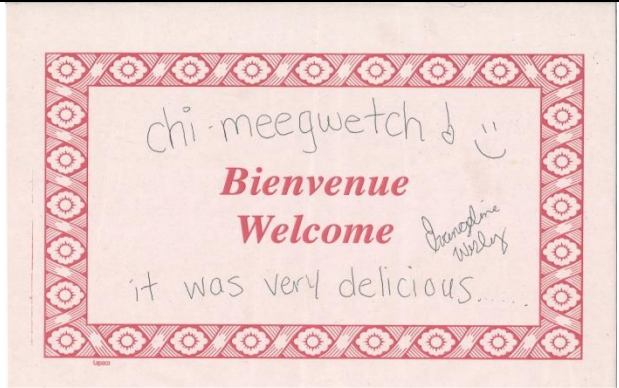 chi-meegwetch! :)
Bienvenue
Welcome
Evangeline
Wesley
it was very delicious......
Lapaco